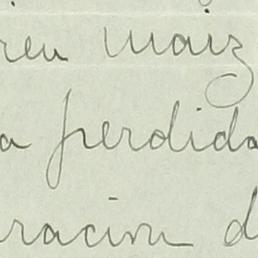 rieu maiz
a perdida
racion d